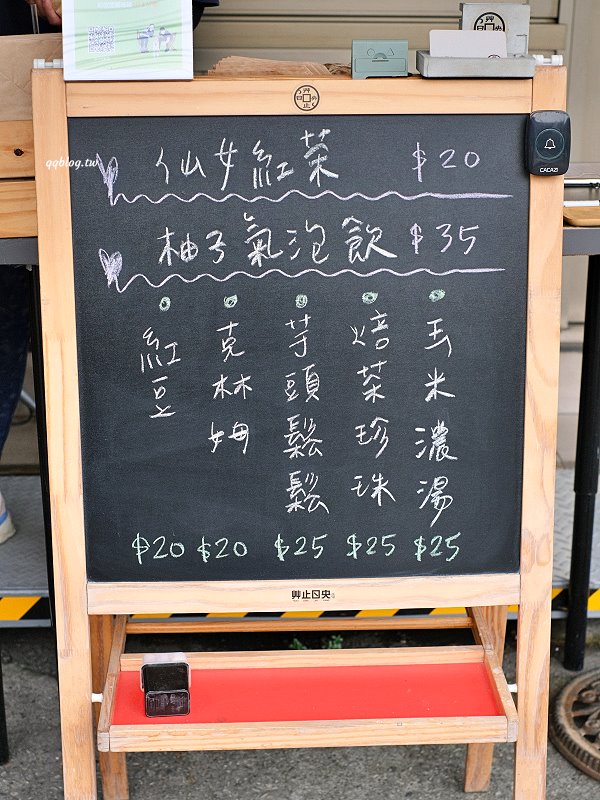 qqblog.tw
CACAZI
仙女紅茶 $20
柚子氣泡飲 $35
紅豆 $20
克林姆 $20
芋頭鬆鬆 $25
焙茶珍珠 $25
玉米濃湯 $25